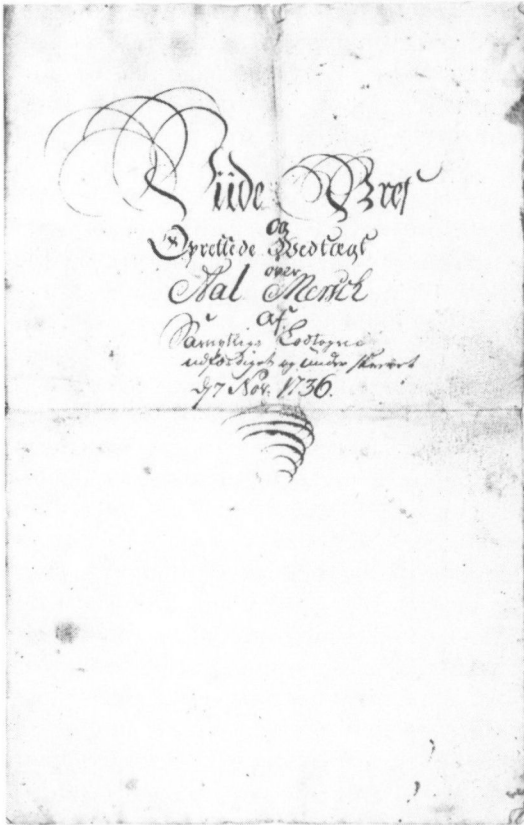 Viide Bref
og
Oprettede Vedtægt
over
Aal Mersch
af
Samptlige Lodtegne
udfærdiget og under skrevet
d 7 Nov. 1736.